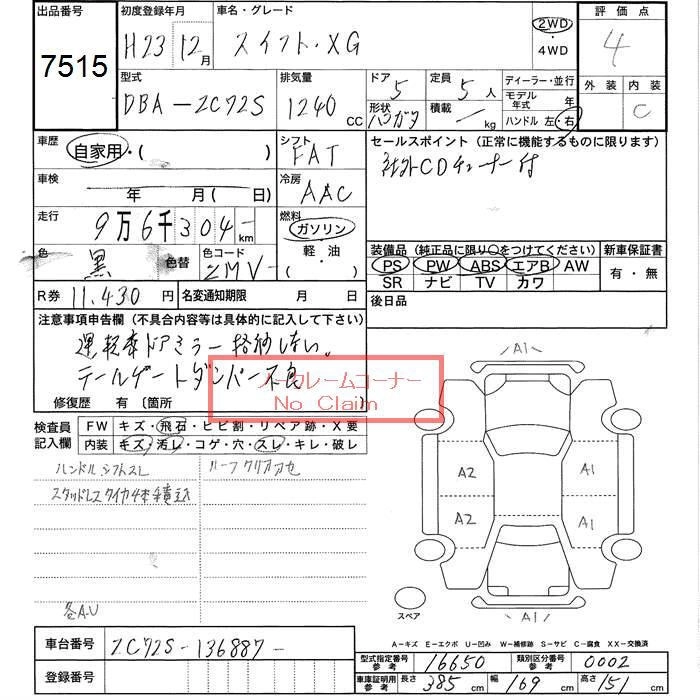 出品番号 初度登録年月 車名・グレード 2WD・4WD 評価点
7515 H23 12月 スイフト・XG 4
型式 排気量 ドア 5 定員 5人 ディーラー・並行 外装 内装
DBA-ZC72S 1240 CC 形状 ハッチバック 積載 - kg モデル年式 年 C
ハンドル 左・右
車歴 自家用・( ) シフト FAT セールスポイント (正常に機能するものに限ります)
社外CDチューナー付
車検 年 月(日) 冷房 AAC
走行 9万6千304 km 燃料 ガソリン
軽・油
( )
色 黒 色替 色コード ZMV- 装備品 (純正品に限り○をつけてください) 新車保証書
PS PW ABS エアB AW 有・無
SR ナビ TV カワ
R券 11,430円 名変通知期限 月 日 後日品
注意事項申告欄 (不具合内容等は具体的に記入して下さい)
運転席ドアミラー格納しない。
テールゲートダンパー不良
ノークレームコーナー
No Claim
修復歴 有 〔箇所 〕
A1
検査員記入欄 FW キズ・飛石・ヒビ割・リペア跡・X要
内装 キズ・汚レ・コゲ・穴・スレ・キレ・破レ
ハンドル シフトスレ ルーフ クリア
スタッドレスタイヤ4本積込
A2 A1
A2 A1
各A・U
スペア A1
車台番号 ZC72S-136887-
登録番号
A-キズ E-エクボ U-凹み W-補修跡 S-サビ C-腐食 XX-交換済
型式指定番号 参考 16650 類別区分番号 参考 0002
車庫証明用 参考 長さ 385cm 幅 169cm 高さ 151cm